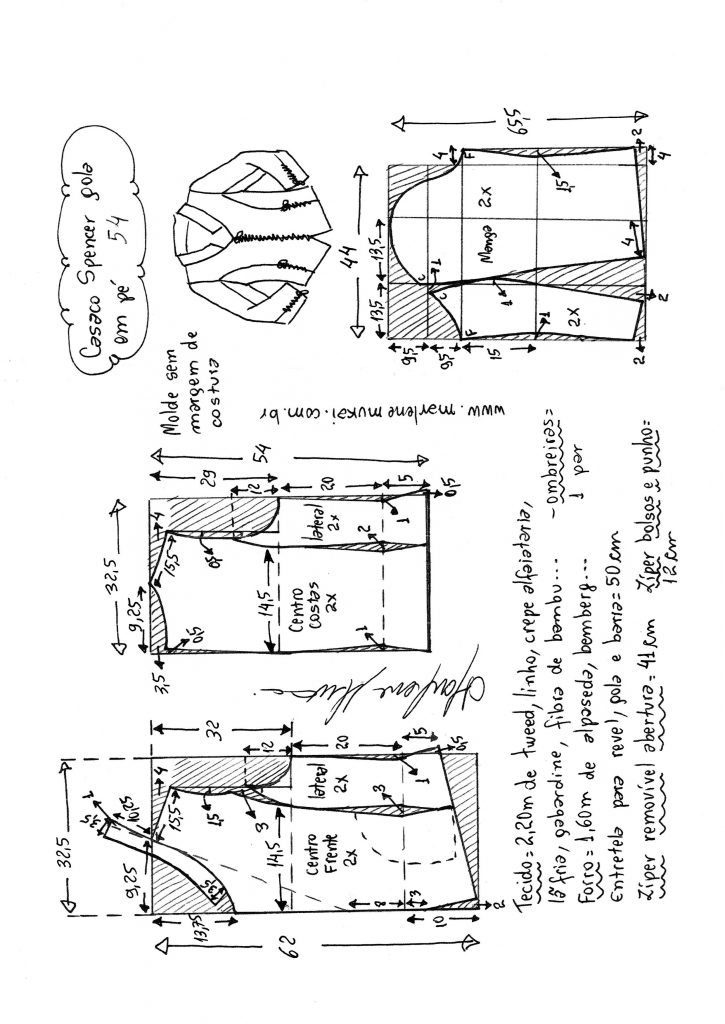 Casaco Spencer gola
em pé 54
Molde sem
margem de
costura
www.marlenemukai.com.br
44
13,5
13,5
9,5
9,5
15
65,5
4
F
2x
Manga
15
2
4
4
1
C
C
1
F
1
2x
2
2
54
29
12
20
5
0,5
32,5
4
15,5
0,5
9,25
3,5
0,5
14,5
lateral
2x
Centro
costas
2x
2
1
1
32
12
20
5
0,5
32,5
4
15,5
1,5
10,25
1
3,5
9,25
3,5
13,75
62
3
14,5
lateral
2x
Centro
Frente
2x
3
1
8
3
10
2
Tecido = 2,20m de tweed, linho, crepe alfaiataria,
lã fria, gabardine, fibra de bambu... - ombreiras =
1 par
Forro = 1,60m de alpaseda, bemberg...
Entretela para revel, gola e barra = 50 cm
Zíper removível abertura = 41 cm Zíper bolsos e punho =
12 cm